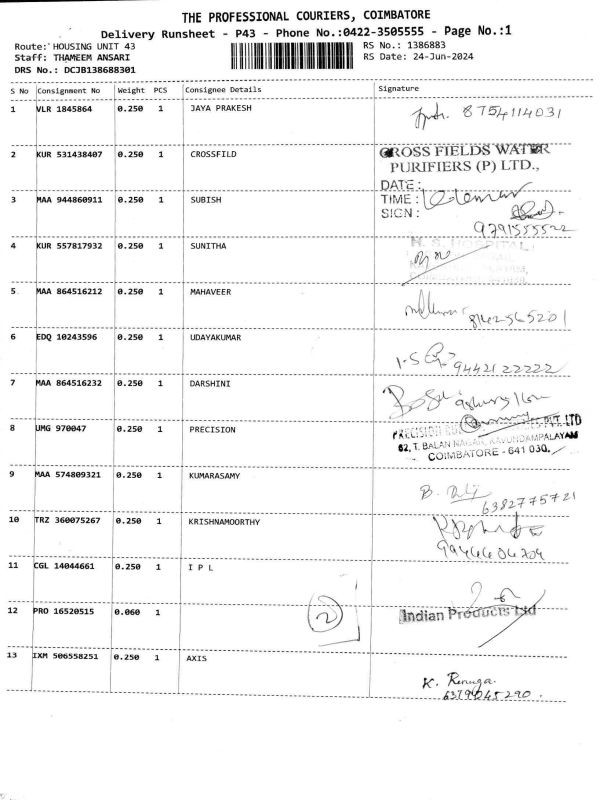 THE PROFESSIONAL COURIERS, COIMBATORE
Delivery Runsheet - P43 - Phone No.:0422-3505555 - Page No.:1
Route: HOUSING UNIT 43 RS No.: 1386883
Staff: THAMEEM ANSARI RS Date: 24-Jun-2024
DRS No.: DCJB138688301
S No Consignment No Weight PCS Consignee Details Signature
1 VLR 1845864 0.250 1 JAYA PRAKESH 8754114031
2 KUR 531438407 0.250 1 CROSSFILD CROSS FIELDS WATER
PURIFIERS (P) LTD.,
DATE:
3 MAA 944860911 0.250 1 SUBISH TIME:
SIGN:
9791555522
4 KUR 557817932 0.250 1 SUNITHA H. S. HOSPITAL
5 MAA 864516212 0.250 1 MAHAVEER
8142565201
6 EDQ 10243596 0.250 1 UDAYAKUMAR
9442122222
7 MAA 864516232 0.250 1 DARSHINI
8 UMG 970047 0.250 1 PRECISION PRECISION PVT. LTD
62, T. BALAN NAGAR, KAVUNDAMPALAYAM
COIMBATORE - 641 030.
9 MAA 574809321 0.250 1 KUMARASAMY B.
6382775721
10 TRZ 360075267 0.250 1 KRISHNAMOORTHY
9944606709
11 CGL 14044661 0.250 1 I P L
12 PRO 16520515 0.060 1 2 Indian Products Ltd
13 IXM 506558251 0.250 1 AXIS
K. Renuga.
6379045290.